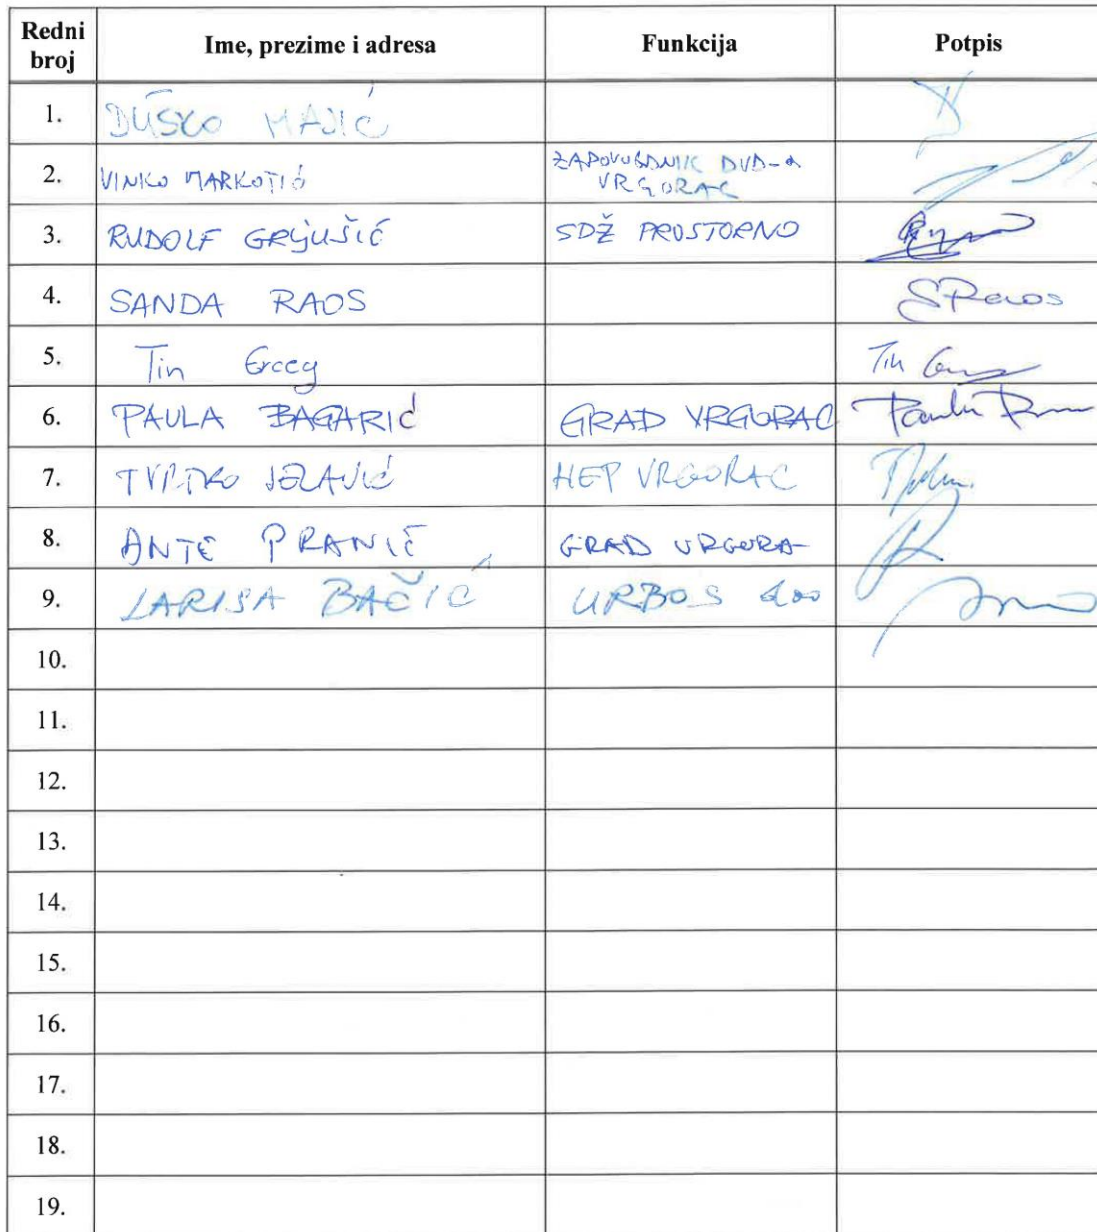 Redni broj Ime, prezime i adresa Funkcija Potpis
1. DUŠKO MAJIĆ
2. VINKO MARKOTIĆ ZAPOVJEDNIK DVD-a
VRGORAC
3. RUDOLF GRLJUŠIĆ SDŽ PROSTORNO
4. SANDA RAOS SRaos
5. Tin Erceg Tin
6. PAULA BAGARIĆ GRAD VRGORAC Paula
7. TVRTKO JELAVIĆ HEP VRGORAC
8. ANTE PRANIĆ GRAD VRGORA
9. LARISA BAČIĆ URBOS doo
10.
11.
12.
13.
14.
15.
16.
17.
18.
19.